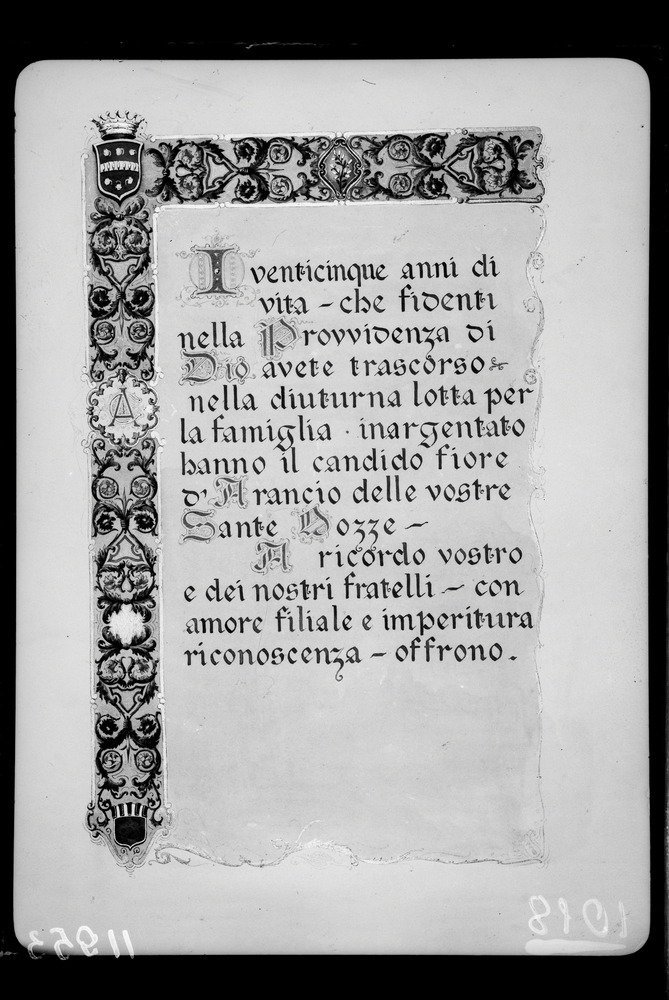 I venticinque anni di
vita – che fidenti
nella Provvidenza di
Dio avete trascorso
nella diuturna lotta per
la famiglia · inargentato
hanno il candido fiore
d'Arancio delle vostre
Sante Nozze –
A ricordo vostro
e dei nostri fratelli – con
amore filiale e imperitura
riconoscenza – offrono.
A
1018
11953